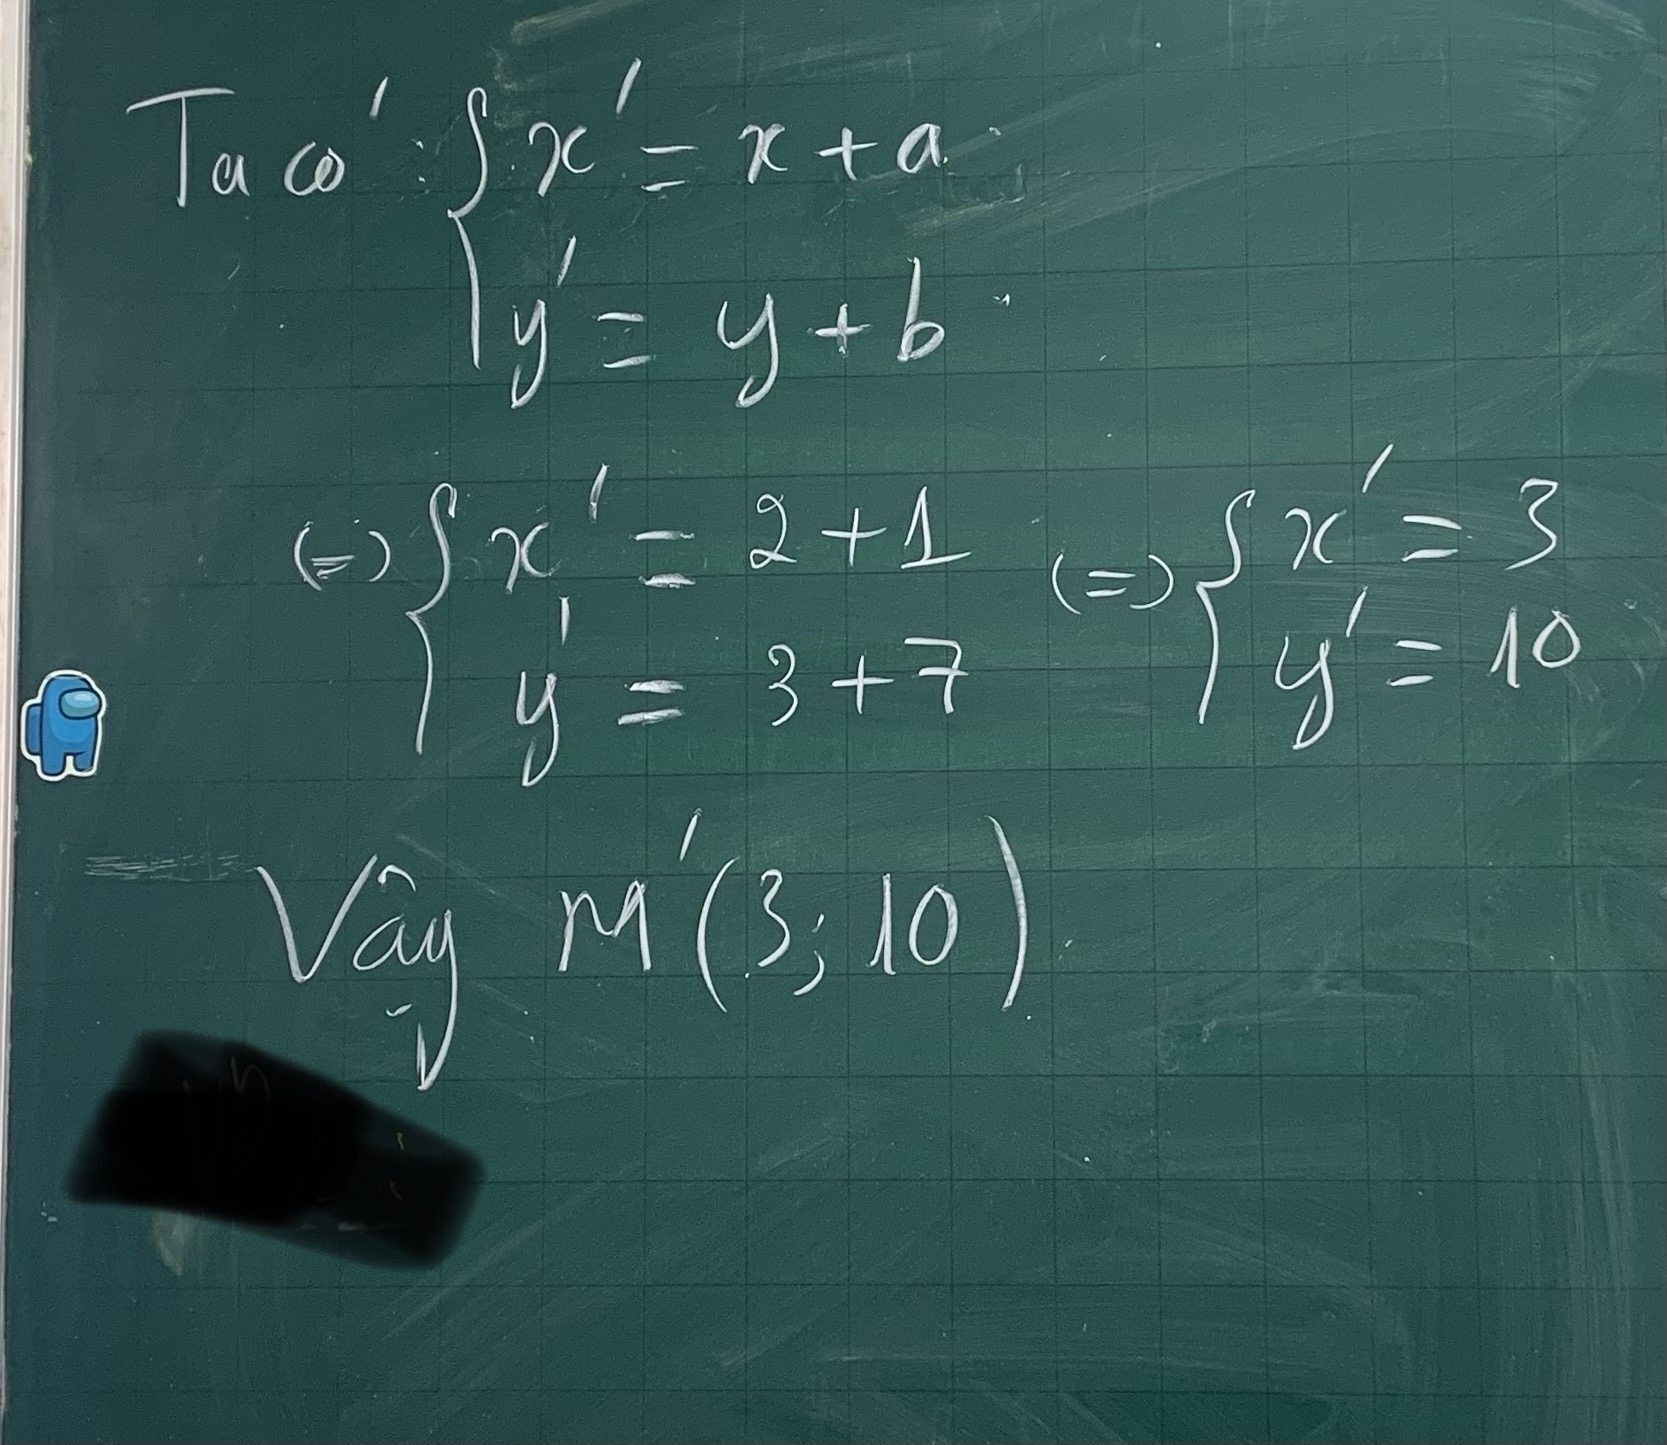 Ta có : { x' = x + a
y' = y + b
(=) { x' = 2 + 1 (=) { x' = 3
y' = 3 + 7 y' = 10
Vậy M'(3; 10)